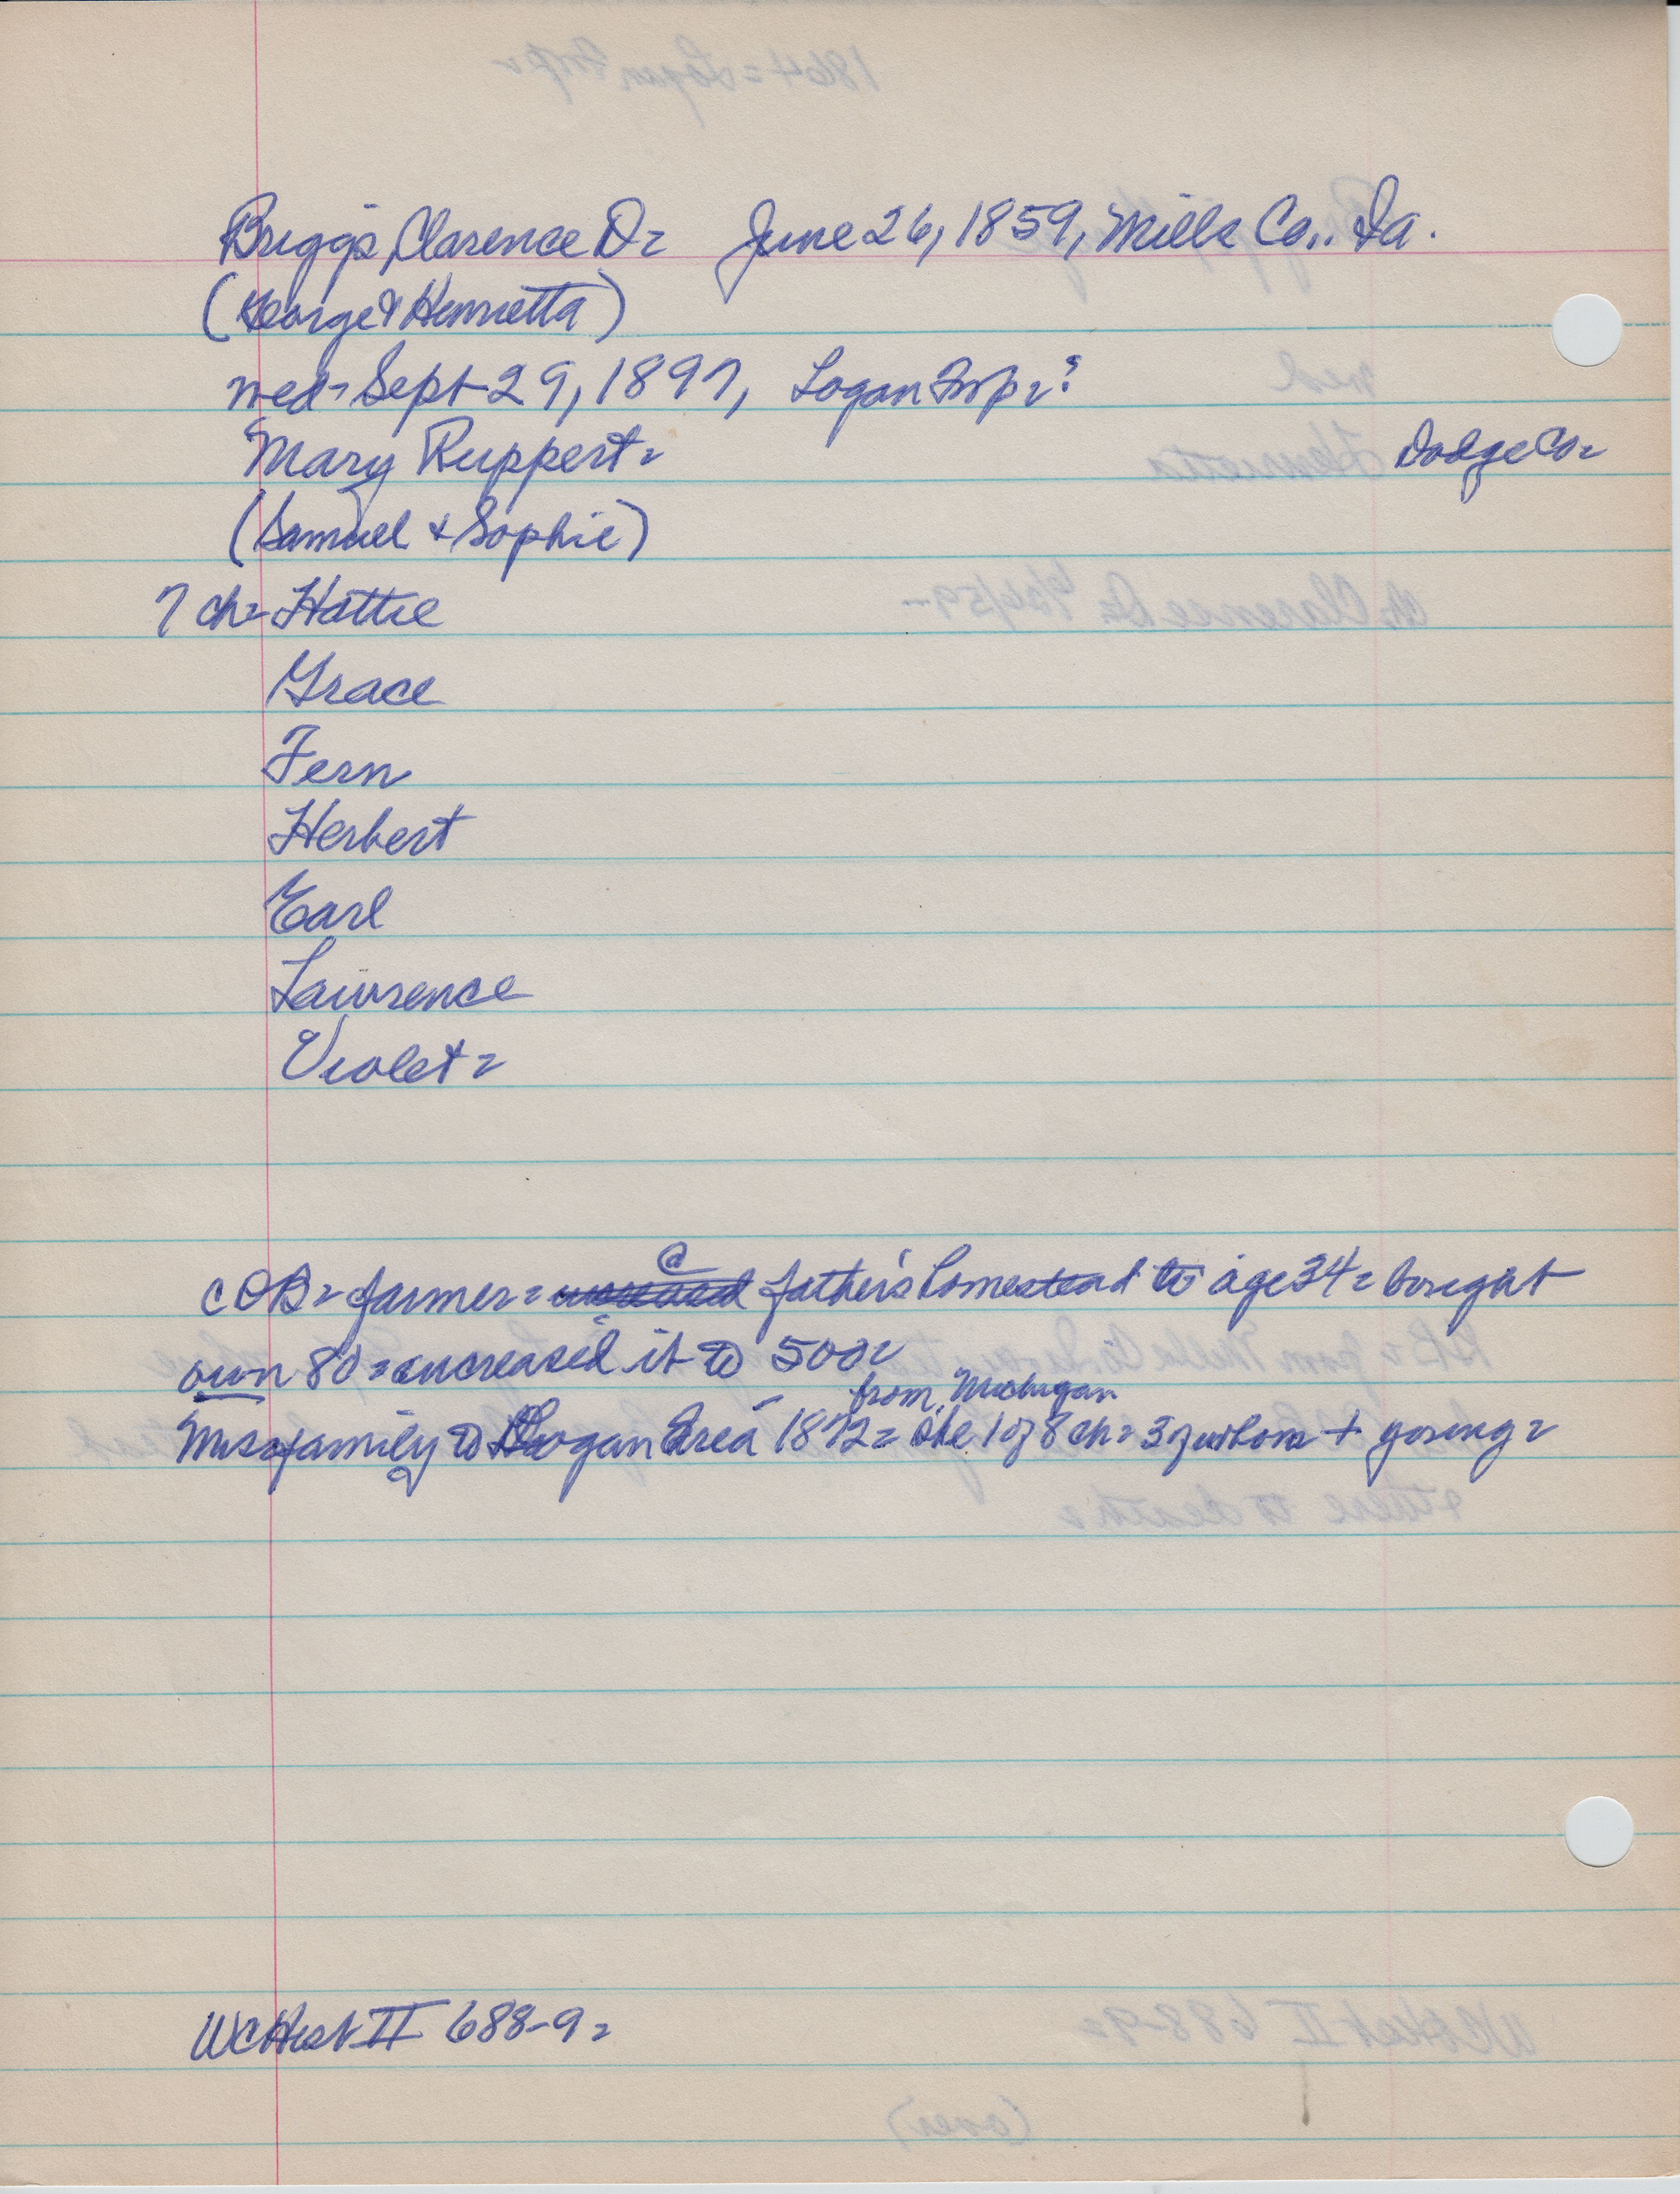 Briggs, Clarence D= June 26, 1859, Mills Co., Ia.
(George & Henrietta)
med= Sept 29, 1897, Logan Twp=?
Mary Ruppert= Dodge Co=
(Samuel + Sophie)
7 ch= Hattie
Grace
Fern
Herbert
Earl
Lawrence
Violet=
CDB= farmer= @ father's homestead to age 34= bought
own 80= increased it to 500=
from Michigan
family to Logan Area 1872= she 1 of 8 ch= 3 of whom + young=
WCHist II 688-9=